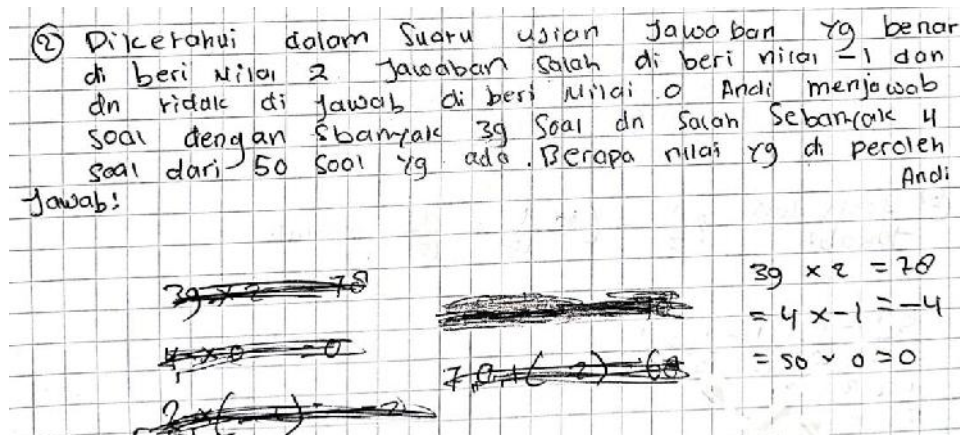 ② Diketahui dalam Suatu ujian Jawaban yg benar
di beri Nilai 2 Jawaban Salah di beri nilai -1 dan
dn tidak di Jawab di beri Nilai 0 Andi menjawab
soal dengan Sbanyak 39 Soal dn Salah Sebanyak 4
soal dari 50 Soal yg ada. Berapa nilai yg di peroleh
Andi
Jawab:
39 × 2 = 78
= 4 × -1 = -4
= 50 × 0 = 0
39 × 2 = 78
4 × 0 = 0